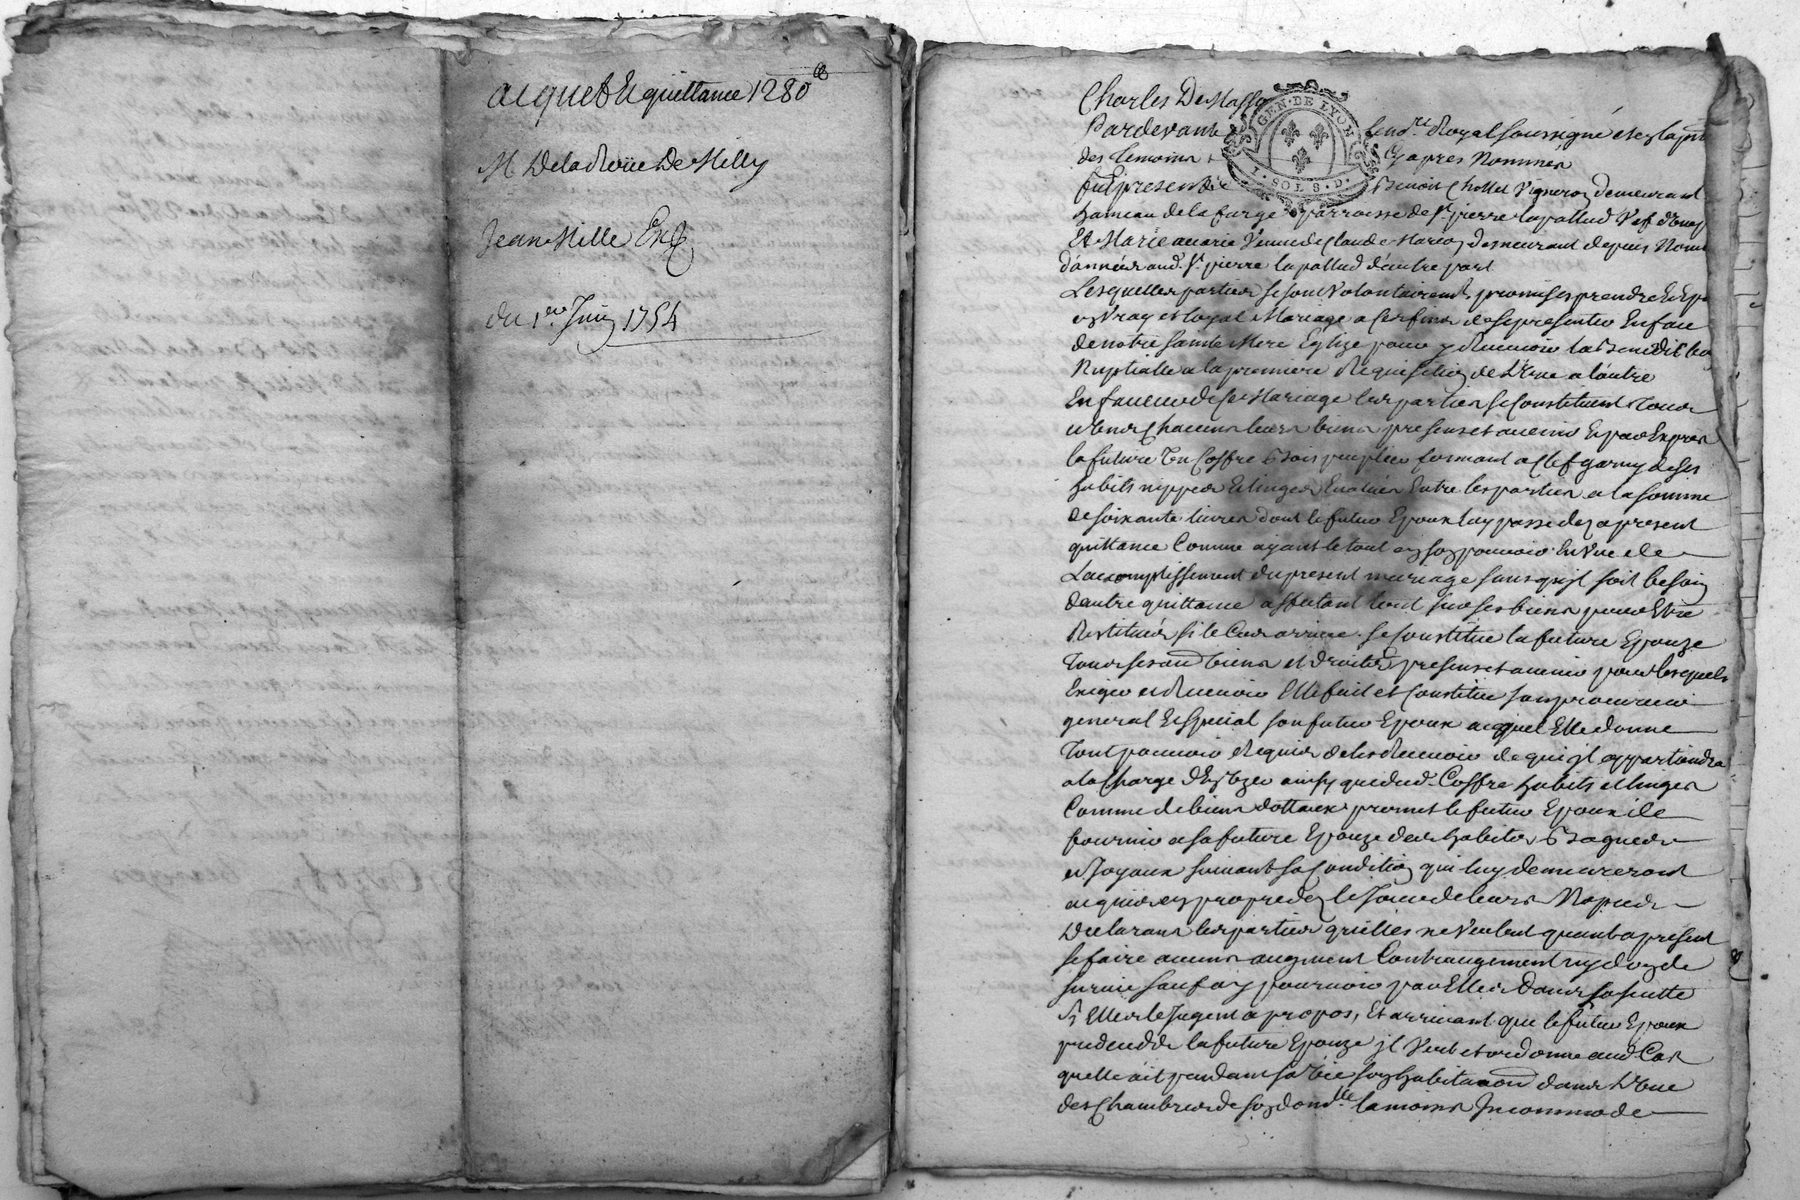 acquet & quittance 1280
M Delaroüe De Milly
Jean Mille
du 1er Juin 1754
Charles De Mass
Pardevant le no.re Royal soussigné et en la
des temoins cy apres Nommés
GEN · DE LYON
1 · SOL 8 · D ·
fut present Benoit Chollet Vigneron demeurant
hameau de la farge parroisse de st pierre la pallud Vef d'une
Et Marie Veuve de Claude demeurant depuis Nom
d'années aud. st pierre la pallud d'autre part
Lesquelles parties se sont volontairement promises prendre & Ep
en Vray et loyal Mariage a ces fins de se presenter En face
de notre sainte Mere Eglize pour y Recevoir la Benediction
Nuptialle a la premiere Requisition de L'Une a l'autre
En faveur de Ce Mariage les parties se Constituent Tous
et Uns Chacuns leurs biens presents et avenir Et par Expres
la future Un Coffre Bois peuplier fermant a Clef garny de ses
habits nippes & linges Evalués Entre les parties a la somme
de soixante livres dont le futur Epoux luy passe dez a present
quittance Comme ayant le tout en son pouvoir En Vue de
L'accomplissement du present mariage sans qu'jl soit besoin
d'autre quittance affectant tout sur ses biens pour Etre
Restitués si le Cas arrive. se Constitue la future Epouze
Tous ses biens et droits presents et avenir pour lesquels
Exiger et Recevoir Elle fait et Constitue son procureur
general & special son futur Epoux auquel Elle donne
Tout pouvoir Requis de les Recevoir de qui jl appartiendra
a la Charge D'En Uzer ainsy que dud. Coffre habits et linges
Comme de biens dottaux promet le futur Epoux de
fournir a sa future Epouze des habits Bagues
et Joyaux suivant sa Condition qui luy demeureront
acquis en propre dez le Jour de leurs Nopces
Declarants les parties qu'elles ne Veulent quant a present
se faire aucuns augment Contraugement ny don de
survie sauf a y pourvoir par Elles Dans la suitte
sy Elles le Jugent a propos, Et arrivant que le futur Epoux
predecede la future Epouze jl Veut et ordonne aud. Cas
quelle ait pendant sa Vie son habitation dans L'Une
des Chambres de son domlle la moins Jncommode